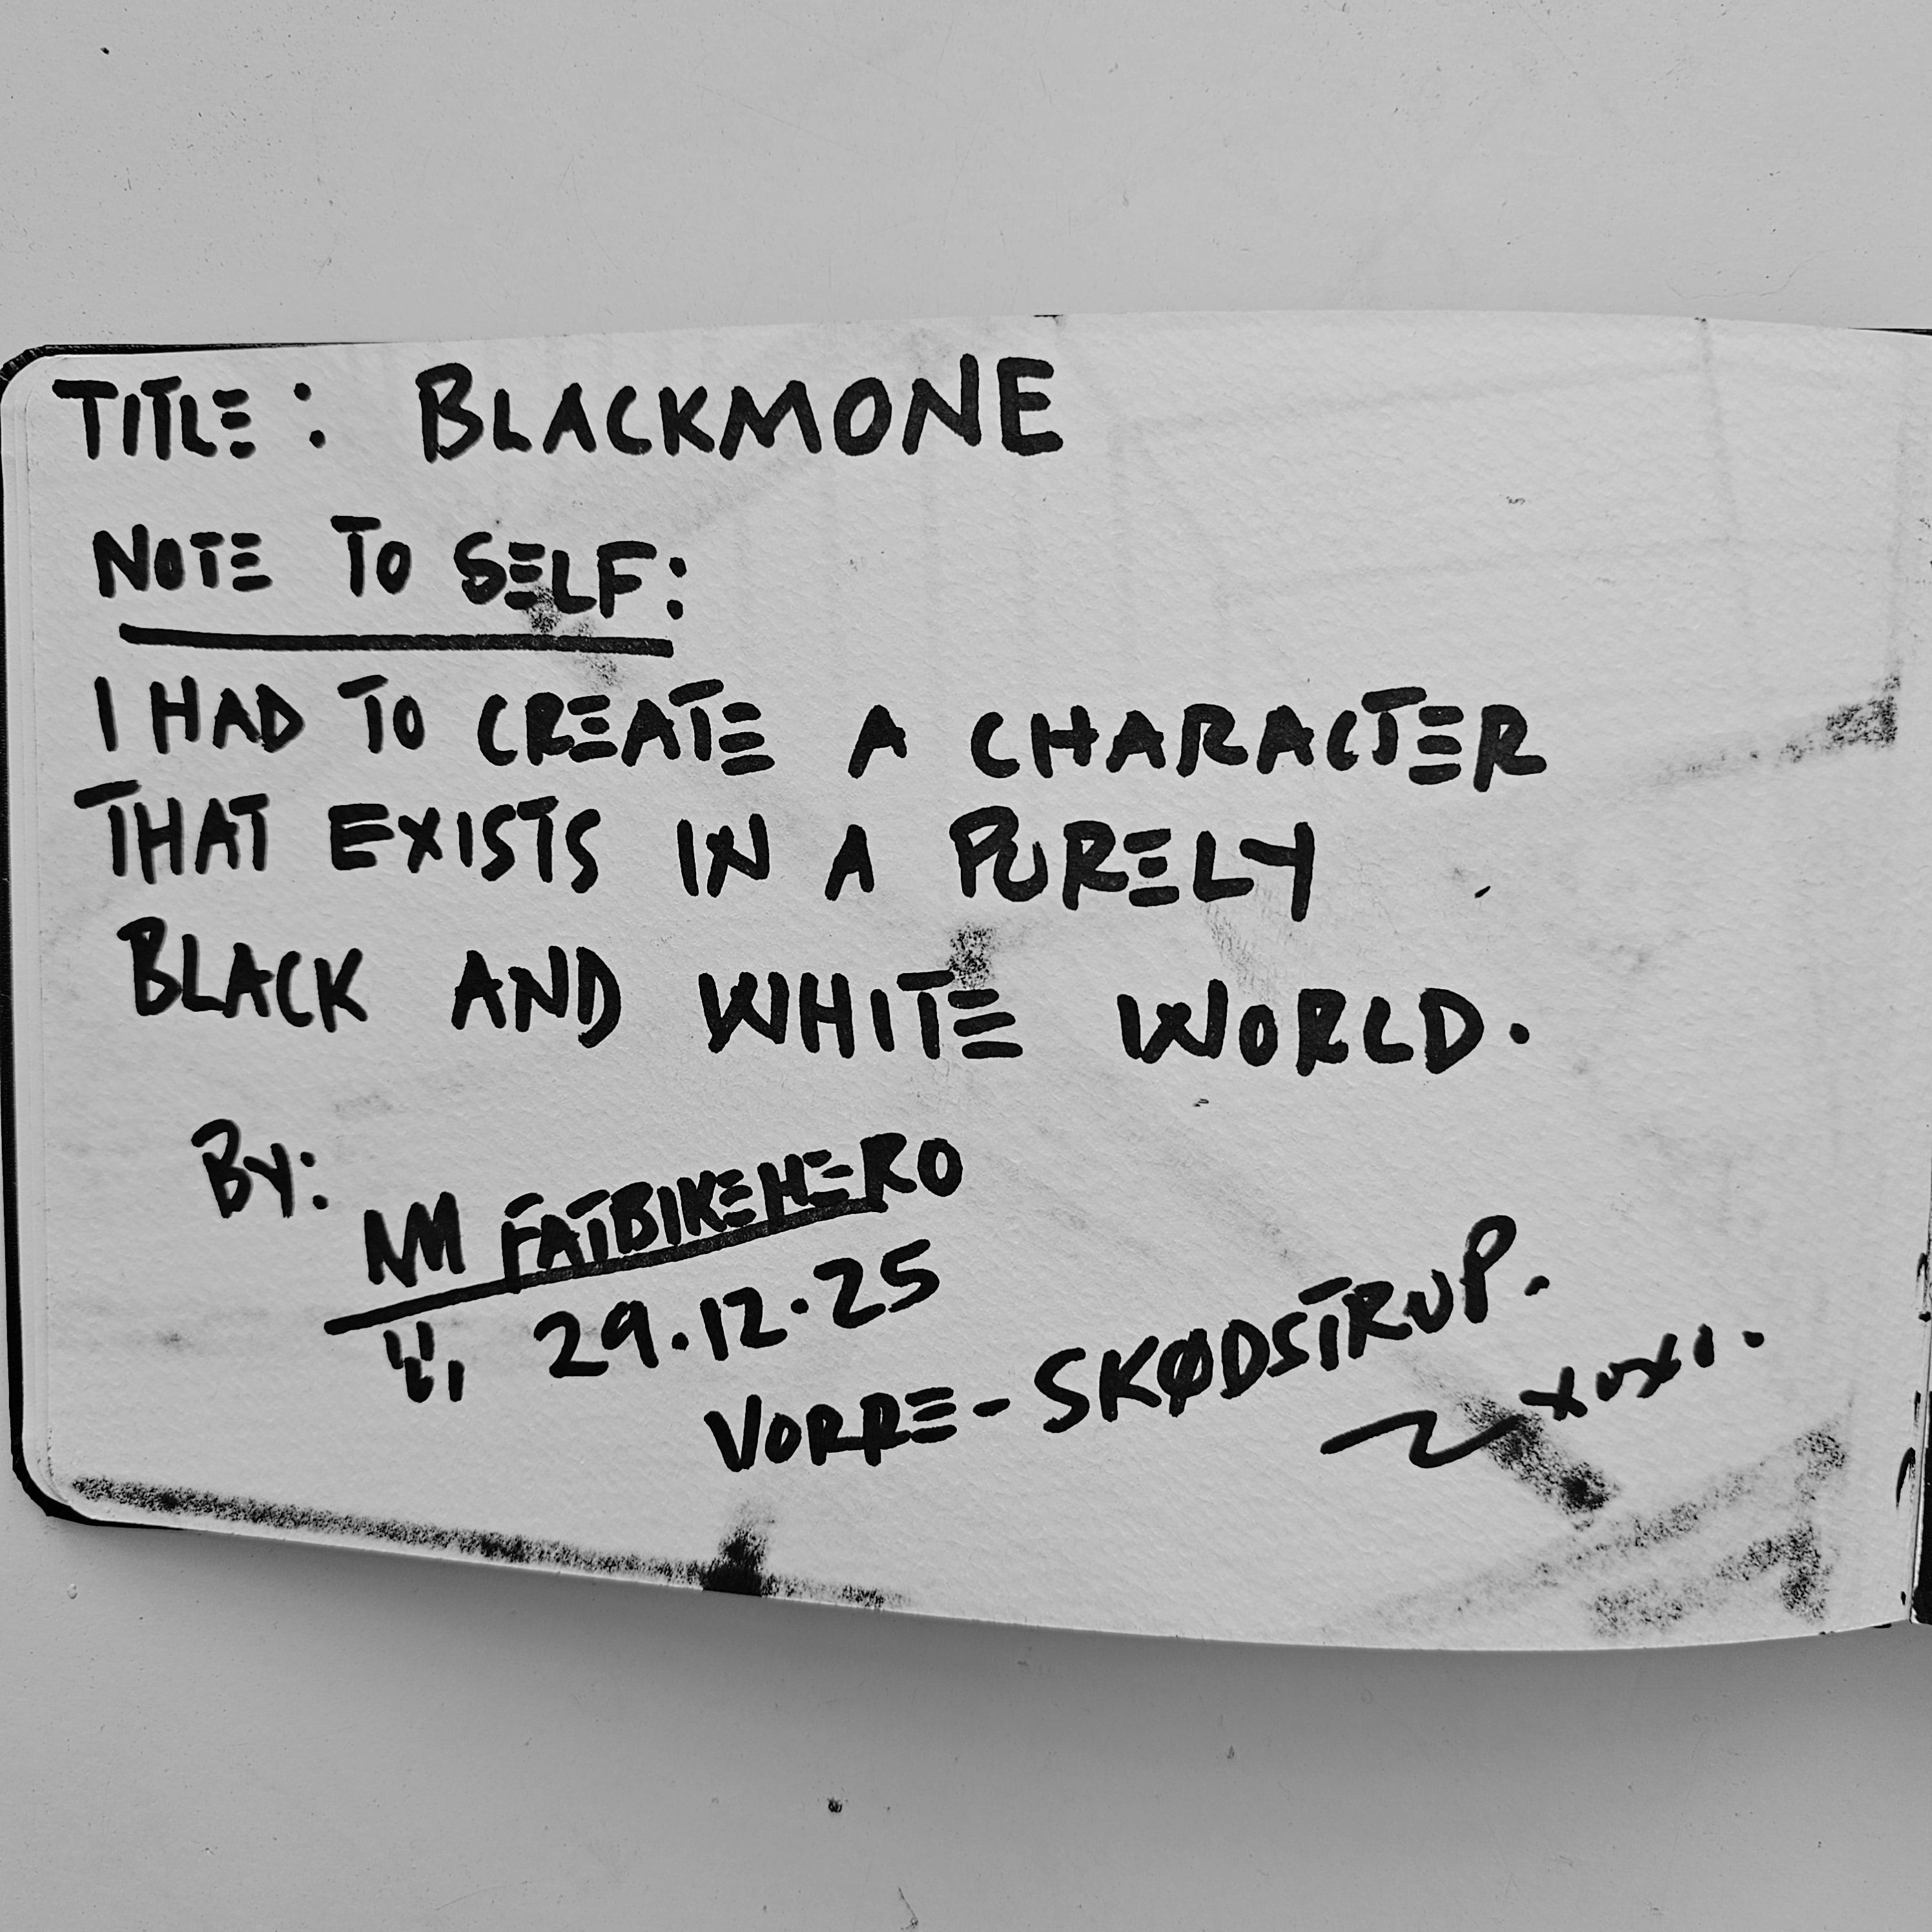 TITLE: BLACKMONE
NOTE TO SELF:
I HAD TO CREATE A CHARACTER
THAT EXISTS IN A PURELY
BLACK AND WHITE WORLD.
BY:
NM FATBIKEHERO
29.12.25
VORRE-SKØDSTRUP.